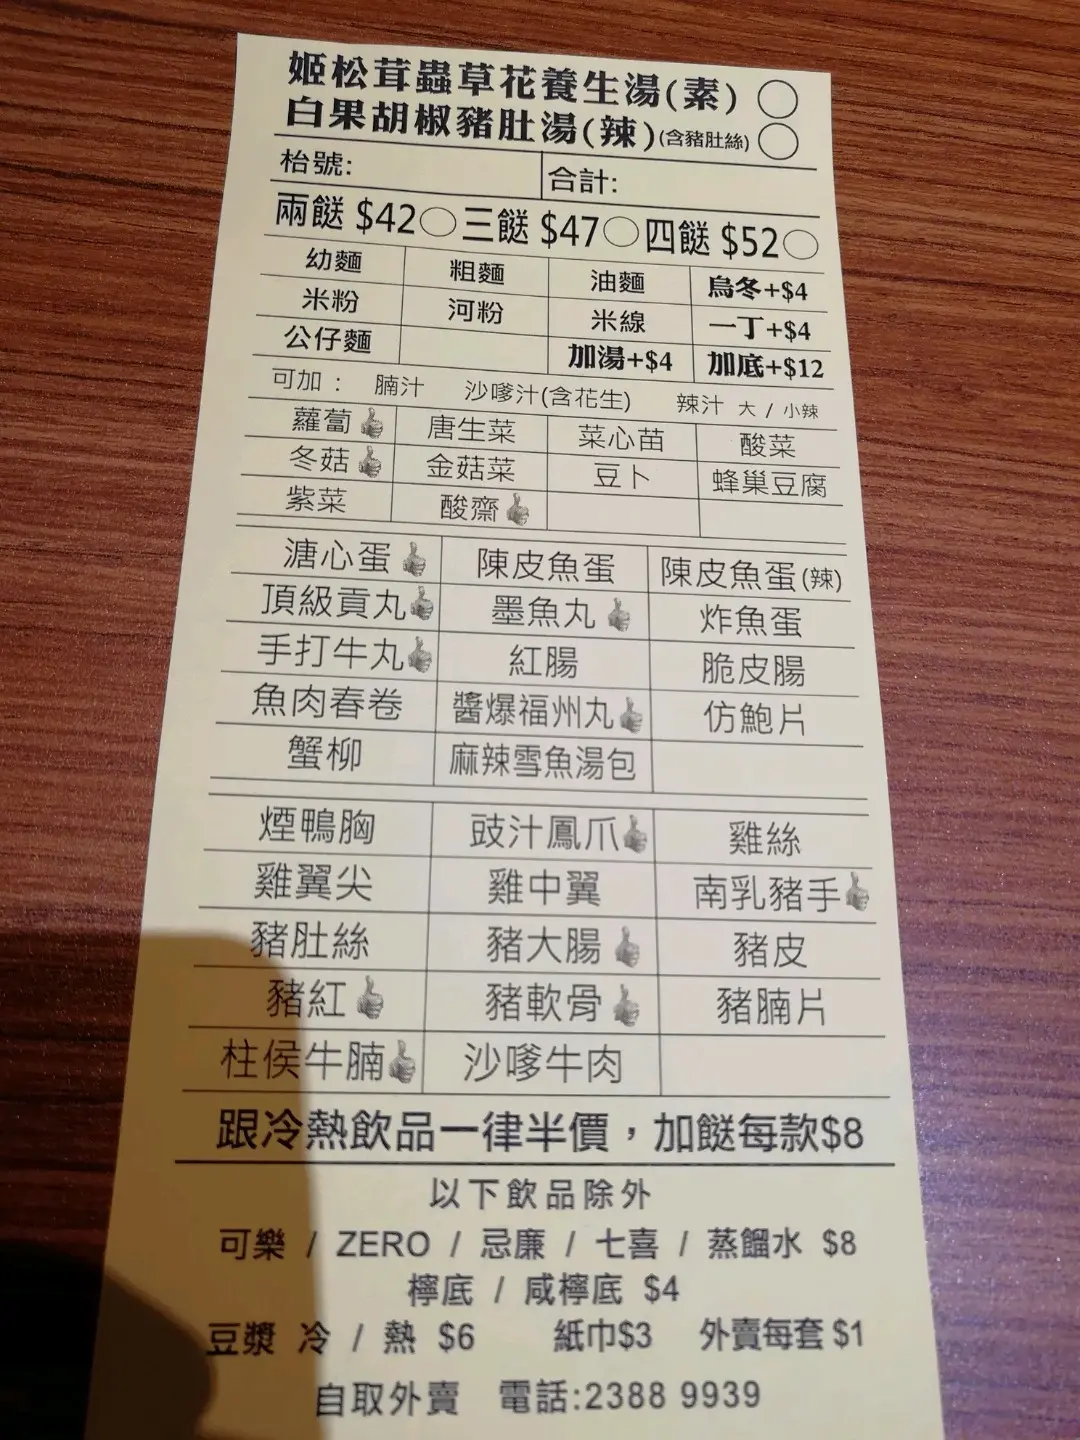 姬松茸蟲草花養生湯(素)
白果胡椒豬肚湯(辣)(含豬肚絲)
枱號: 合計:
兩餸 $42 三餸 $47 四餸 $52
幼麵 粗麵 油麵 烏冬+$4
米粉 河粉 米線 一丁+$4
公仔麵 加湯+$4 加底+$12
可加: 腩汁 沙嗲汁(含花生) 辣汁 大 / 小辣
蘿蔔 唐生菜 菜心苗 酸菜
冬菇 金菇菜 豆卜 蜂巢豆腐
紫菜 酸齋
溏心蛋 陳皮魚蛋 陳皮魚蛋(辣)
頂級貢丸 墨魚丸 炸魚蛋
手打牛丸 紅腸 脆皮腸
魚肉春卷 醬爆福州丸 仿鮑片
蟹柳 麻辣雪魚湯包
煙鴨胸 豉汁鳳爪 雞絲
雞翼尖 雞中翼 南乳豬手
豬肚絲 豬大腸 豬皮
豬紅 豬軟骨 豬腩片
柱侯牛腩 沙嗲牛肉
跟冷熱飲品一律半價，加餸每款$8
以下飲品除外
可樂 / ZERO / 忌廉 / 七喜 / 蒸餾水 $8
檸底 / 咸檸底 $4
豆漿 冷 / 熱 $6 紙巾$3 外賣每套 $1
自取外賣 電話:2388 9939